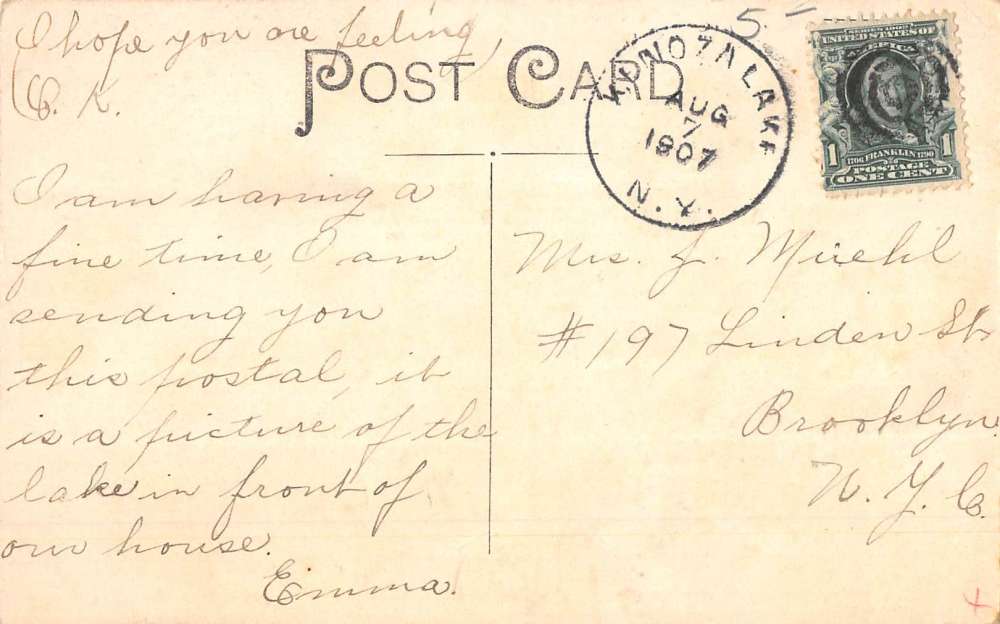 I hope you are feeling
O. K.
POST CARD
5-
KENOZA LAKE
AUG
7
1907
N.Y.
SERIES 1902
UNITED STATES OF
AMERICA
1
1706 FRANKLIN 1790
1
POSTAGE
ONE CENT
I am having a
fine time, I am
sending you
this postal, it
is a picture of the
lake in front of
our house.
Emma.
Mrs. L. Miehl
#197 Linden St.
Brooklyn
N. Y. C.